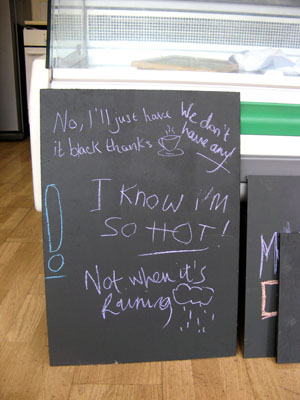 No, I'll just have
it black thanks
We don't
have any
I KNOW i'M
SO HOT!
Not when it's
Raining
!
M